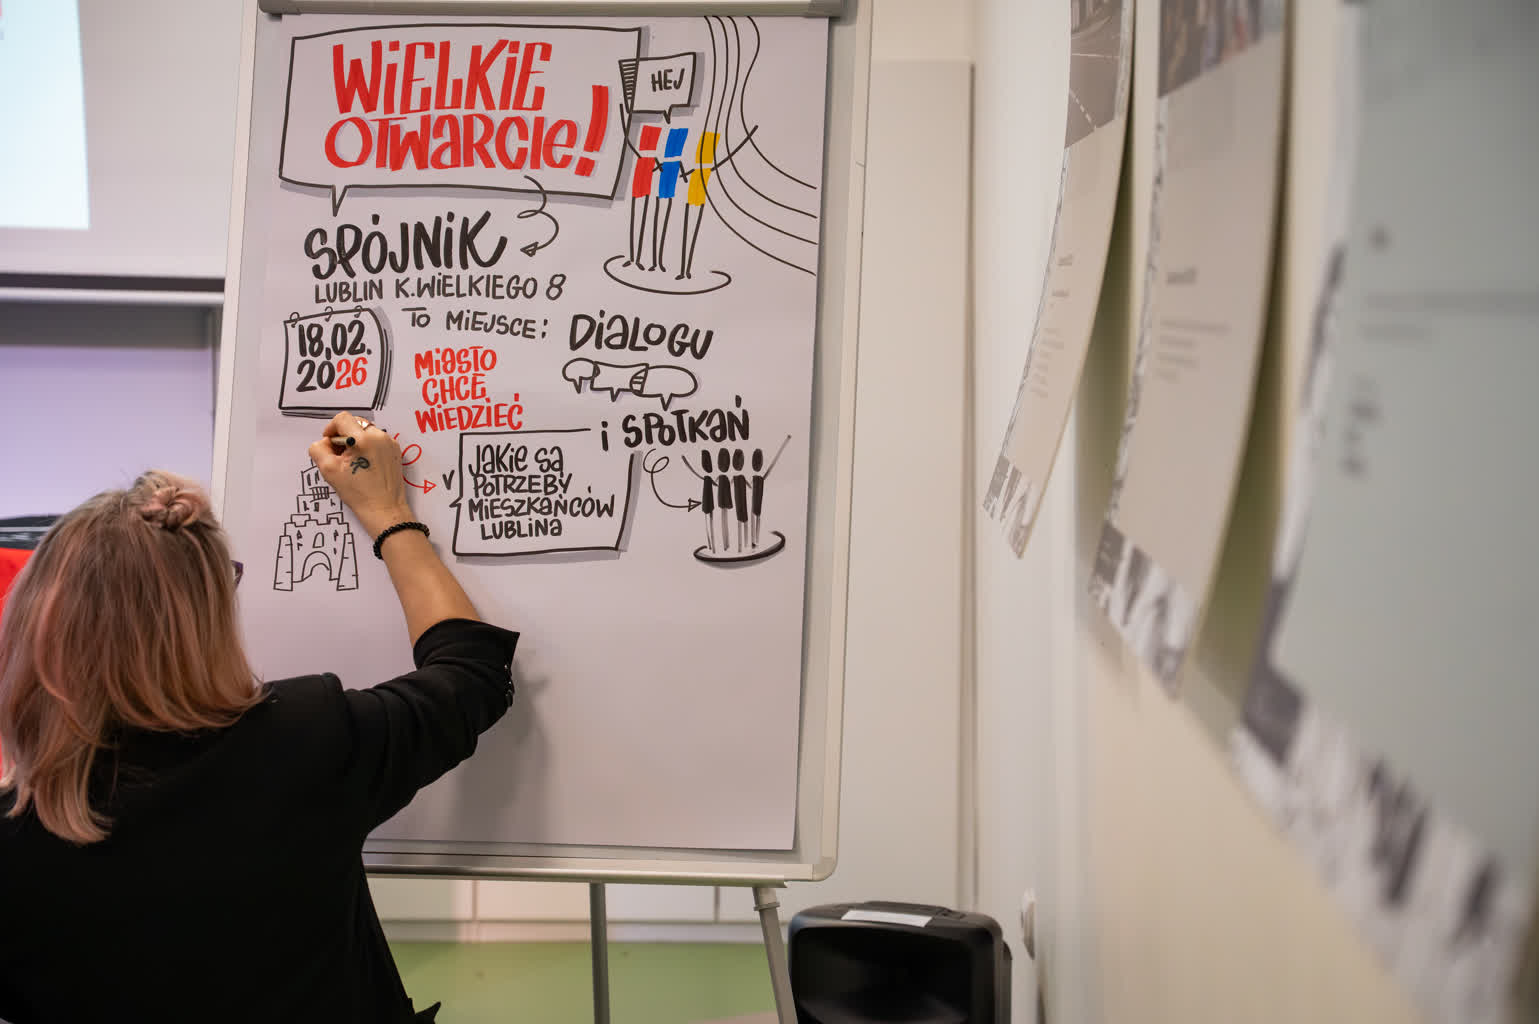 WIELKIE
OTWARCIE!
HEJ
SPÓJNIK
LUBLIN K.WIELKIEGO 8
18.02.
2026
TO MIEJSCE:
DIALOGU
I SPOTKAŃ
MIASTO
CHCE
WIEDZIEĆ
JAKIE SĄ
POTRZEBY
MIESZKAŃCÓW
LUBLINA